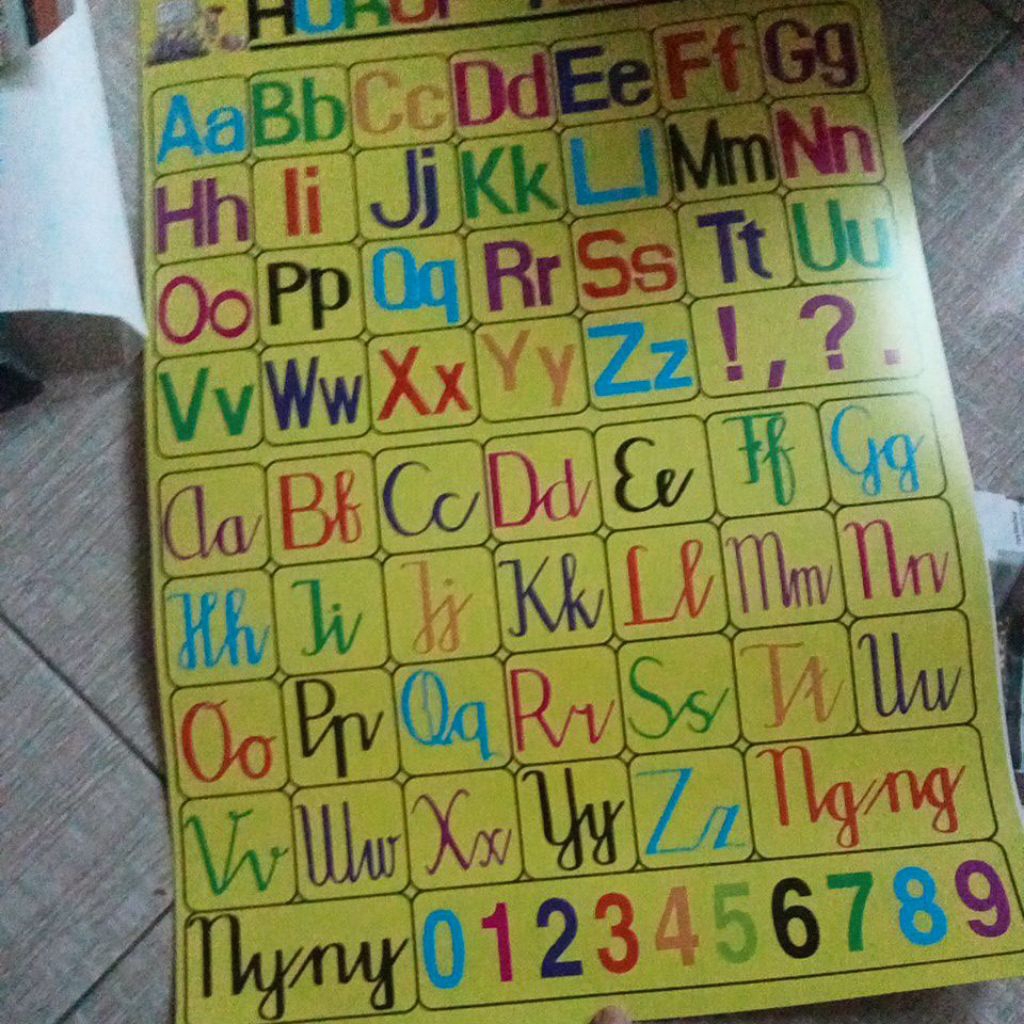 HURUF
Aa Bb Cc Dd Ee Ff Gg
Hh Ii Jj Kk Ll Mm Nn
Oo Pp Qq Rr Ss Tt Uu
Vv Ww Xx Yy Zz ! , ? .
Aa Bb Cc Dd Ee Ff Gg
Hh Ii Jj Kk Ll Mm Nn
Oo Pp Qq Rr Ss Tt Uu
Vv Ww Xx Yy Zz Ng/ng
Ny/ny 0 1 2 3 4 5 6 7 8 9